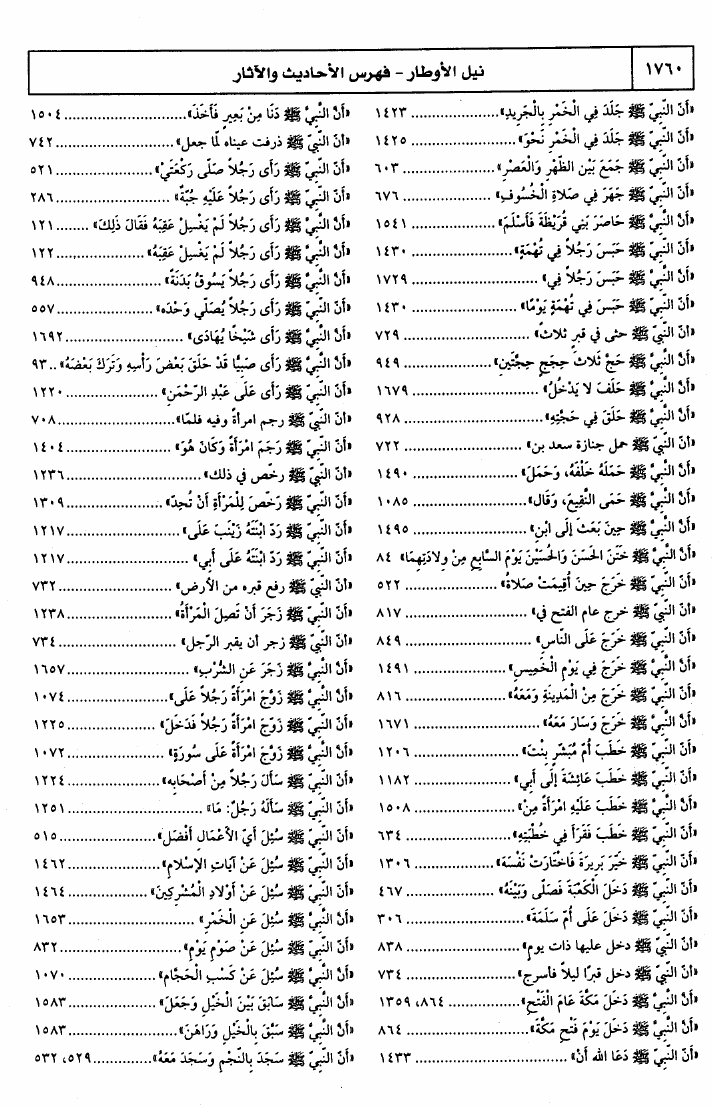 ١٧٦٠
نيل الأوطار - فهرس الأحاديث والآثار
«أَنَّ النَّبِيَّ ﷺ جَلَدَ فِي الْخَمْرِ بِالْجَرِيدِ» ........ ١٤٢٣
«أَنَّ النَّبِيَّ ﷺ جَلَدَ فِي الْخَمْرِ نَحْوَ» ........ ١٤٢٥
«أَنَّ النَّبِيَّ ﷺ جَمَعَ بَيْنَ الظُّهْرِ وَالْعَصْرِ» ........ ٦٠٣
«أَنَّ النَّبِيَّ ﷺ جَهَرَ فِي صَلَاةِ الْخُسُوفِ» ........ ٦٧٦
«أَنَّ النَّبِيَّ ﷺ حَاصَرَ بَنِي قُرَيْظَةَ فَأَسْلَمَ» ........ ١٥٤١
«أَنَّ النَّبِيَّ ﷺ حَبَسَ رَجُلاً فِي تُهْمَةٍ» ........ ١٤٣٠
«أَنَّ النَّبِيَّ ﷺ حَبَسَ رَجُلاً فِي» ........ ١٧٢٩
«أَنَّ النَّبِيَّ ﷺ حَبَسَ فِي تُهْمَةٍ يَوْمًا» ........ ١٤٣٠
«أنّ النّبيّ ﷺ حثى في قبرٍ ثلاثاً» ........ ٧٢٩
«أَنَّ النَّبِيَّ ﷺ حَجَّ ثَلَاثَ حِجَجٍ حِجَّتَيْنِ» ........ ٩٤٩
«أَنَّ النَّبِيَّ ﷺ حَلَفَ لَا يَدْخُلُ» ........ ١٦٧٩
«أَنَّ النَّبِيَّ ﷺ حَلَقَ فِي حَجَّتِهِ» ........ ٩٢٨
«أنّ النّبيّ ﷺ حمل جنازة سعد بن» ........ ٧٢٢
«أَنَّ النَّبِيَّ ﷺ حَمَلَهُ خَلْفَهُ، وَحَمَلَ» ........ ١٤٩٠
«أَنَّ النَّبِيَّ ﷺ حَمَى النَّقِيعَ، وَقَال» ........ ١٠٨٥
«أَنَّ النَّبِيَّ ﷺ حِينَ بَعَثَ إِلَى ابْنِ» ........ ١٤٩٥
«أَنَّ النَّبِيَّ ﷺ خَتَنَ الحَسَنَ وَالحُسَيْنَ يَوْمَ السَّابِعِ مِنْ وِلَادَتِهِمَا» ٨٤
«أَنَّ النَّبِيَّ ﷺ خَرَجَ حِينَ أُقِيمَتْ صَلَاةُ» ........ ٥٢٢
«أنّ النّبيّ ﷺ خرج عام الفتح في» ........ ٨١٧
«أَنَّ النَّبِيَّ ﷺ خَرَجَ عَلَى النَّاسِ» ........ ٨٤٩
«أَنَّ النَّبِيَّ ﷺ خَرَجَ فِي يَوْمِ الْخَمِيسِ» ........ ١٤٩١
«أَنَّ النَّبِيَّ ﷺ خَرَجَ مِنْ الْمَدِينَةِ وَمَعَهُ» ........ ٨١٦
«أَنَّ النَّبِيَّ ﷺ خَرَجَ وَسَارَ مَعَهُ» ........ ١٦٧١
«أَنَّ النَّبِيَّ ﷺ خَطَبَ أُمَّ مُبَشِّرٍ بِنْتَ» ........ ١٢٠٦
«أَنَّ النَّبِيَّ ﷺ خَطَبَ عَائِشَةَ إِلَى أَبِي» ........ ١١٨٢
«أَنَّ النَّبِيَّ ﷺ خَطَبَ عَلَيْهِ امْرَأَةً مِنْ» ........ ١٥٠٨
«أَنَّ النَّبِيَّ ﷺ خَطَبَ فَقَرَأَ فِي خُطْبَتِهِ» ........ ٦٣٤
«أَنَّ النَّبِيَّ ﷺ خَيَّرَ بَرِيرَةَ فَاخْتَارَتْ نَفْسَهَ» ........ ١٣٠٦
«أَنَّ النَّبِيَّ ﷺ دَخَلَ الْكَعْبَةَ فَصَلَّى وَبَيْنَهُ» ........ ٤٦٧
«أَنَّ النَّبِيَّ ﷺ دَخَلَ عَلَى أُمِّ سَلَمَةَ» ........ ٣٠٦
«أنّ النّبيّ ﷺ دخل عليها ذات يوم» ........ ٨٣٨
«أنّ النّبيّ ﷺ دخل قبرًا ليلاً فأسرج» ........ ٧٣٤
«أَنَّ النَّبِيَّ ﷺ دَخَلَ مَكَّةَ عَامَ الْفَتْحِ» ........ ٨٦٤، ١٣٥٩
«أَنَّ النَّبِيَّ ﷺ دَخَلَ يَوْمَ فَتْحِ مَكَّةَ» ........ ٨٦٤
«أَنَّ النَّبِيَّ ﷺ دَعَا الله أَنْ» ........ ١٤٣٣
«أَنَّ النَّبِيَّ ﷺ دَنَا مِنْ بَعِيرٍ فَأَخَذَ» ........ ١٥٠٤
«أنّ النّبيّ ﷺ ذرفت عيناه لمّا جعل» ........ ٧٤٢
«أَنَّ النَّبِيَّ ﷺ رَأَى رَجُلاً صَلَّى رَكْعَتَيْ» ........ ٥٢١
«أَنَّ النَّبِيَّ ﷺ رَأَى رَجُلاً عَلَيْهِ جُبَّةٌ» ........ ٢٨٦
«أَنَّ النَّبِيَّ ﷺ رَأَى رَجُلاً لَمْ يَغْسِلْ عَقِبَهُ فَقَالَ ذَلِكَ» ........ ١٢١
«أَنَّ النَّبِيَّ ﷺ رَأَى رَجُلاً لَمْ يَغْسِلْ عَقِبَهُ» ........ ١٢٢
«أَنَّ النَّبِيَّ ﷺ رَأَى رَجُلاً يَسُوقُ بَدَنَةً» ........ ٩٤٨
«أَنَّ النَّبِيَّ ﷺ رَأَى رَجُلاً يُصَلِّي وَحْدَه» ........ ٥٥٧
«أَنَّ النَّبِيَّ ﷺ رَأَى شَيْخًا يُهَادَى» ........ ١٦٩٢
«أَنَّ النَّبِيَّ ﷺ رَأَى صَبِيًّا قَدْ حَلَقَ بَعْضَ رَأْسِهِ وَتَرَكَ بَعْضَهُ» .. ٩٣
«أَنَّ النَّبِيَّ ﷺ رَأَى عَلَى عَبْدِ الرَّحْمَنِ» ........ ١٢٢٠
«أنّ النّبيّ ﷺ رجم امرأةً وفيه فلمّا» ........ ٧٠٨
«أَنَّ النَّبِيَّ ﷺ رَجَمَ امْرَأَةً وَكَانَ هُوَ» ........ ١٤٠٤
«أنّ النّبيّ ﷺ رخّص في ذلك» ........ ١٢٣٦
«أَنَّ النَّبِيَّ ﷺ رَخَّصَ لِلْمَرْأَةِ أَنْ تُحِدَّ» ........ ١٣٠٩
«أَنَّ النَّبِيَّ ﷺ رَدَّ ابْنَتَهُ زَيْنَبَ عَلَى» ........ ١٢١٧
«أَنَّ النَّبِيَّ ﷺ رَدَّ ابْنَتَهُ عَلَى أَبِي» ........ ١٢١٧
«أنّ النّبيّ ﷺ رفع قبره من الأرض» ........ ٧٣٢
«أَنَّ النَّبِيَّ ﷺ زَجَرَ أَنْ تَصِلَ الْمَرْأَةُ» ........ ١٢٣٨
«أنّ النّبيّ ﷺ زجر أن يقبر الرّجل» ........ ٧٣٤
«أَنَّ النَّبِيَّ ﷺ زَجَرَ عَنِ الشُّرْبِ» ........ ١٦٥٧
«أَنَّ النَّبِيَّ ﷺ زَوَّجَ امْرَأَةً رَجُلاً عَلَى» ........ ١٠٧٤
«أَنَّ النَّبِيَّ ﷺ زَوَّجَ امْرَأَةً رَجُلاً فَدَخَلَ» ........ ١٢٢٥
«أَنَّ النَّبِيَّ ﷺ زَوَّجَ امْرَأَةً عَلَى سُورَةٍ» ........ ١٠٧٢
«أَنَّ النَّبِيَّ ﷺ سَأَلَ رَجُلاً مِنْ أَصْحَابِه» ........ ١٢٢٤
«أَنَّ النَّبِيَّ ﷺ سَأَلَهُ رَجُلٌ: مَا» ........ ١٢٥١
«أَنَّ النَّبِيَّ ﷺ سُئِلَ أَيُّ الأَعْمَالِ أَفْضَل» ........ ٥١٥
«أَنَّ النَّبِيَّ ﷺ سُئِلَ عَنْ آيَاتِ الإِسْلَامِ» ........ ١٤٦٢
«أَنَّ النَّبِيَّ ﷺ سُئِلَ عَنْ أَوْلَادِ الْمُشْرِكِينَ» ........ ١٤٦٤
«أَنَّ النَّبِيَّ ﷺ سُئِلَ عَنِ الْخَمْرِ» ........ ١٦٥٣
«أَنَّ النَّبِيَّ ﷺ سُئِلَ عَنْ صَوْمِ يَوْمِ» ........ ٨٣٢
«أَنَّ النَّبِيَّ ﷺ سُئِلَ عَنْ كَسْبِ الْحَجَّامِ» ........ ١٠٧٠
«أَنَّ النَّبِيَّ ﷺ سَابَقَ بَيْنَ الْخَيْلِ وَجَعَلَ» ........ ١٥٨٣
«أَنَّ النَّبِيَّ ﷺ سَبَّقَ بِالْخَيْلِ وَرَاهَنَ» ........ ١٥٨٣
«أَنَّ النَّبِيَّ ﷺ سَجَدَ بِالنَّجْمِ وَسَجَدَ مَعَهُ» ........ ٥٢٩، ٥٣٢